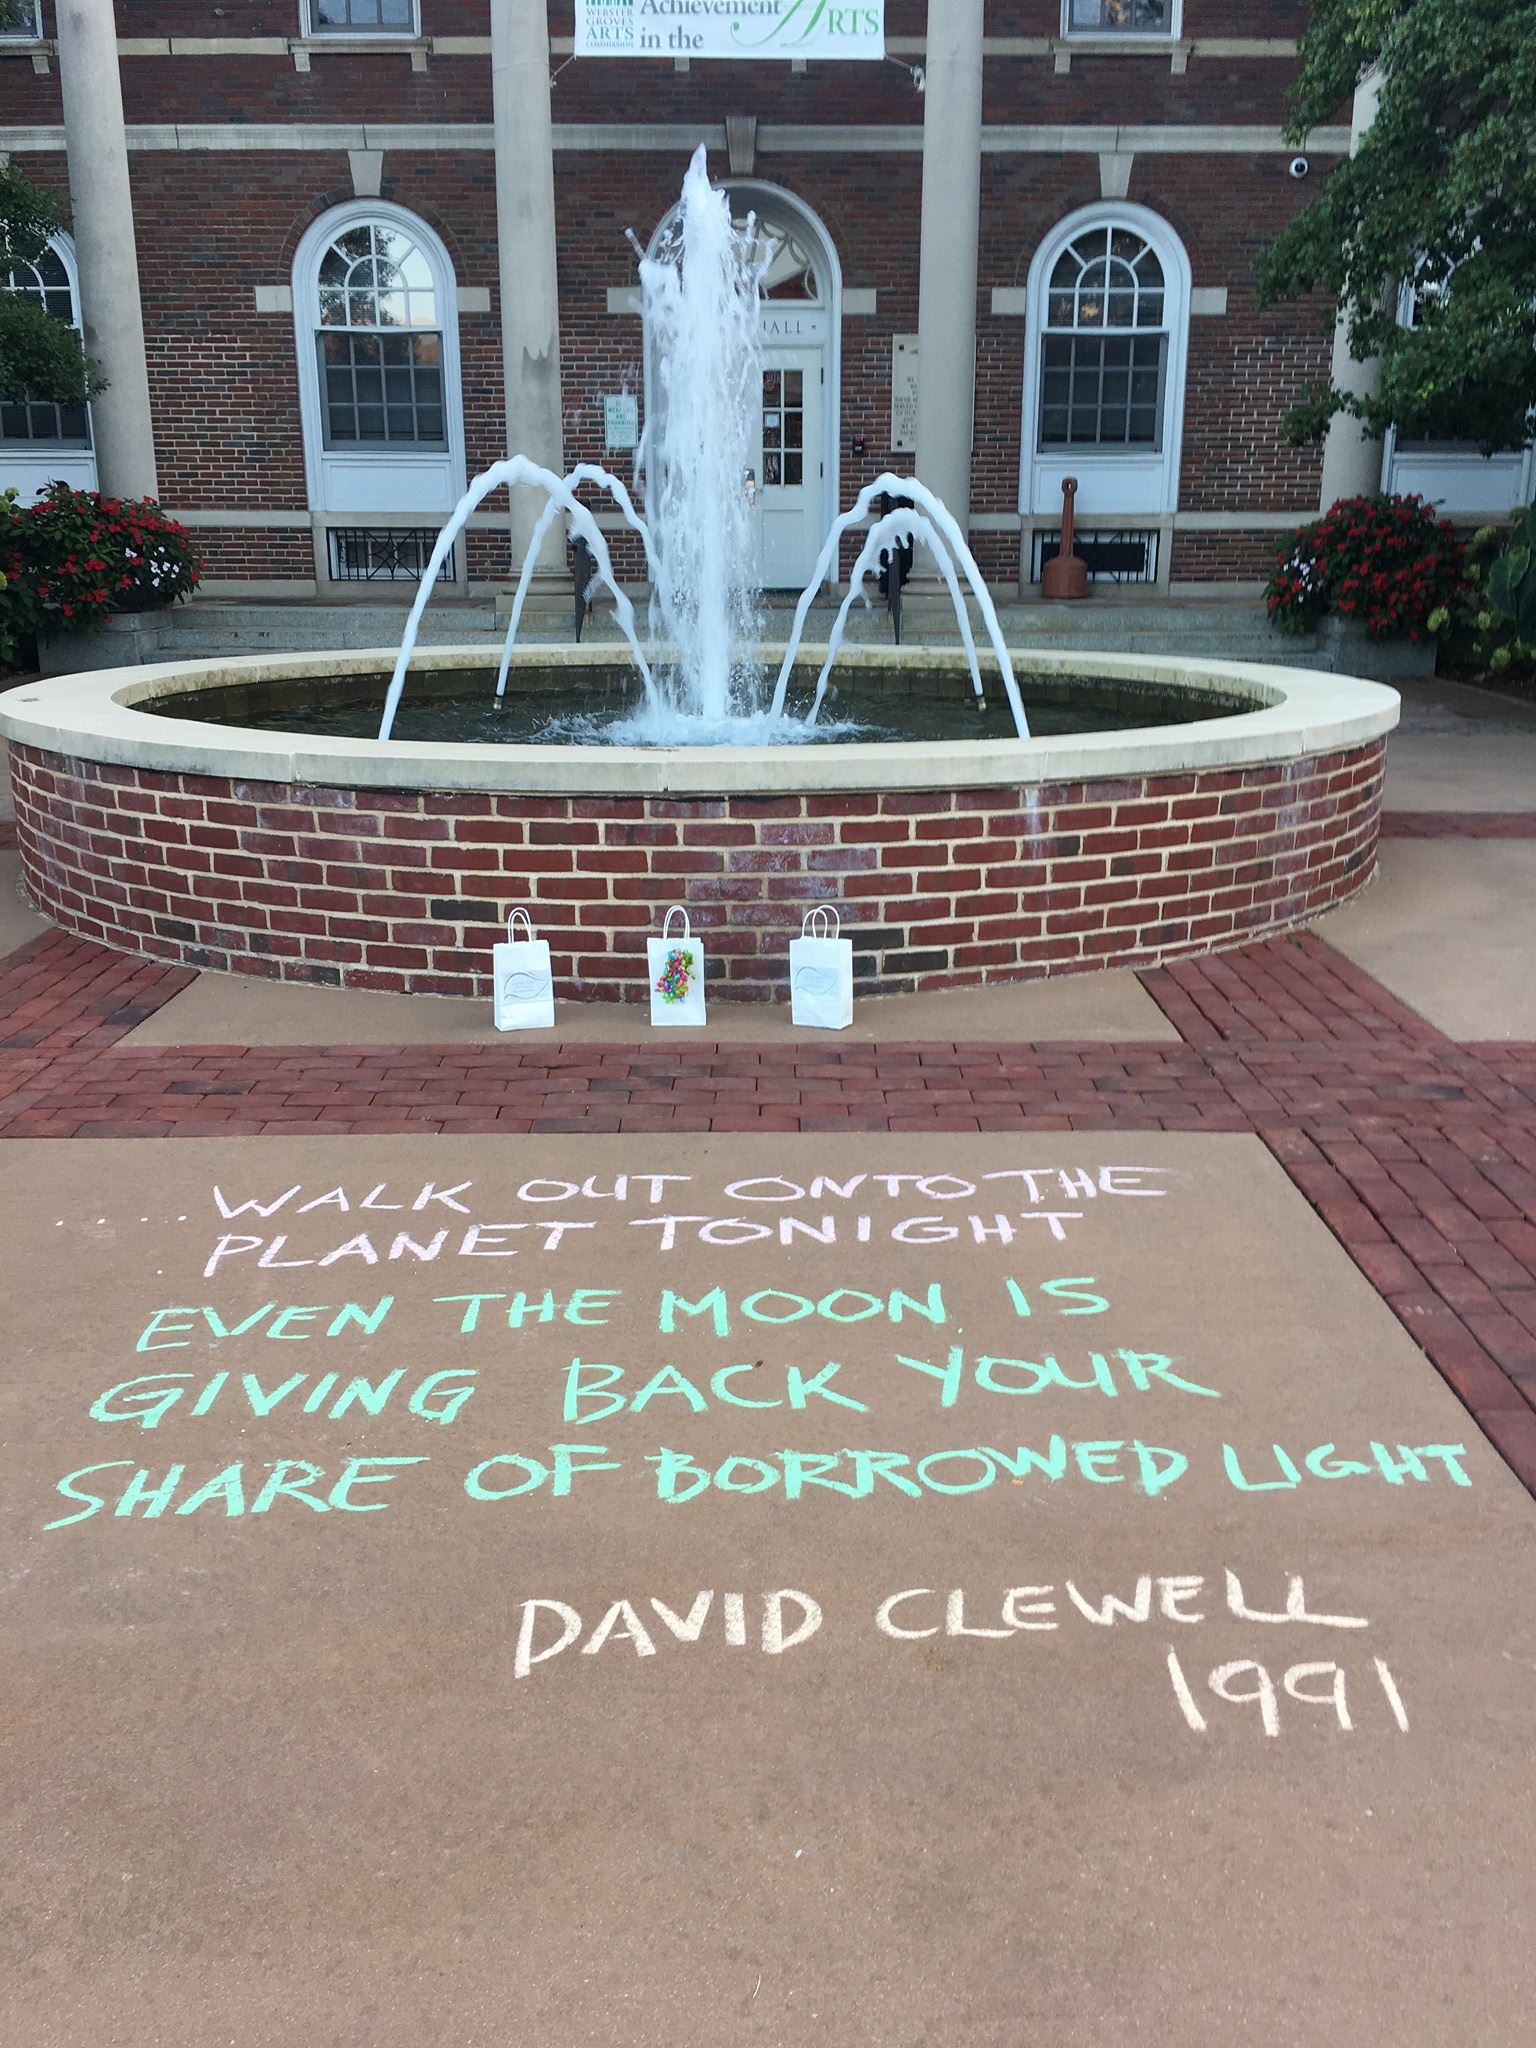 WEBSTER
GROVES
ARTS
COMMISSION
Achievement
in the ARTS
HALL
WEAPONS
ARE
PROHIBITED
.....WALK OUT ONTO THE
PLANET TONIGHT
EVEN THE MOON IS
GIVING BACK YOUR
SHARE OF BORROWED LIGHT
DAVID CLEWELL
1991